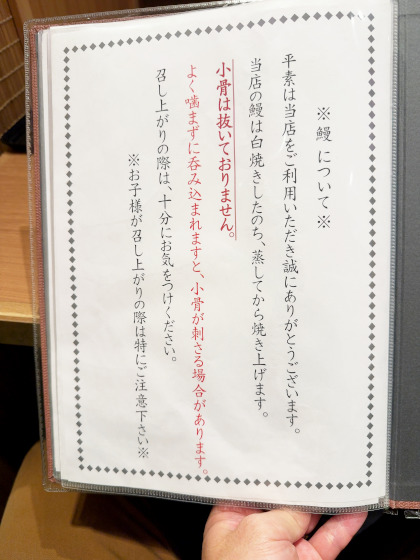 ※鰻について※
平素は当店をご利用いただき誠にありがとうございます。
当店の鰻は白焼きしたのち、蒸してから焼き上げます。
小骨は抜いておりません。
よく噛まずに呑み込まれますと、小骨が刺さる場合があります。
召し上がりの際は、十分にお気をつけください。
※お子様が召し上がりの際は特にご注意下さい※